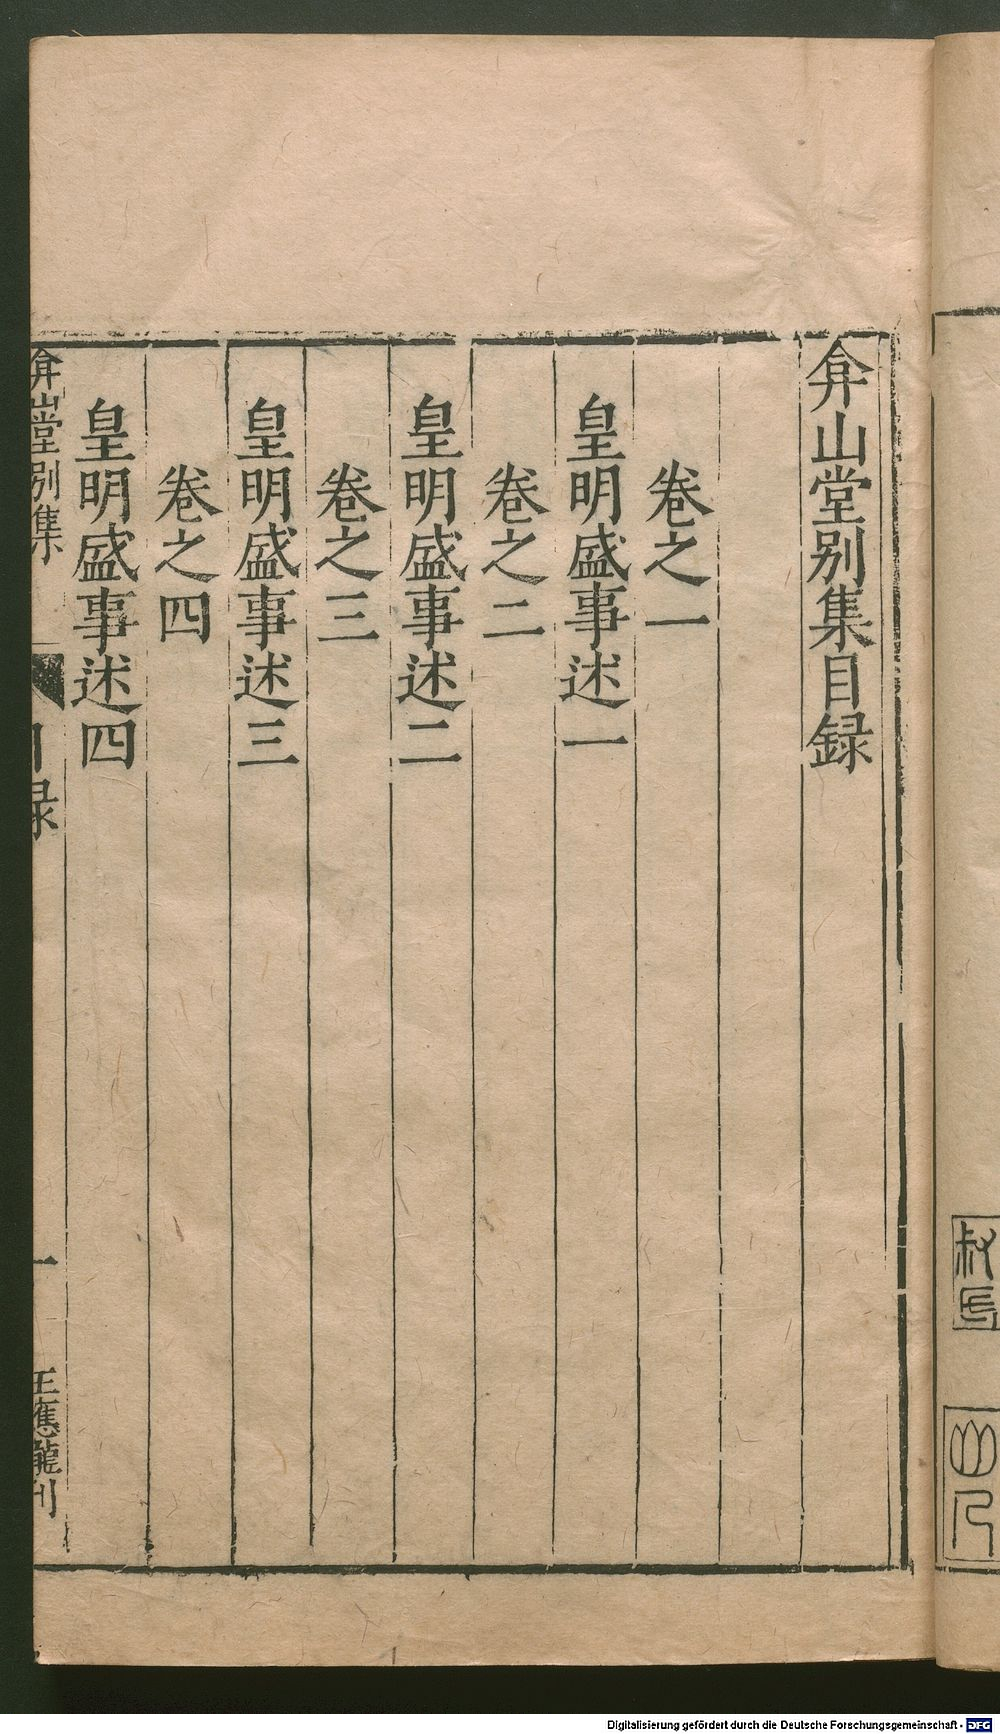 弇山堂别集目録
卷之一
皇明盛事述一
卷之二
皇明盛事述二
卷之三
皇明盛事述三
卷之四
皇明盛事述四
弇山堂别集
目録
一
王應龍刊
Digitalisierung gefördert durch die Deutsche Forschungsgemeinschaft - DFG